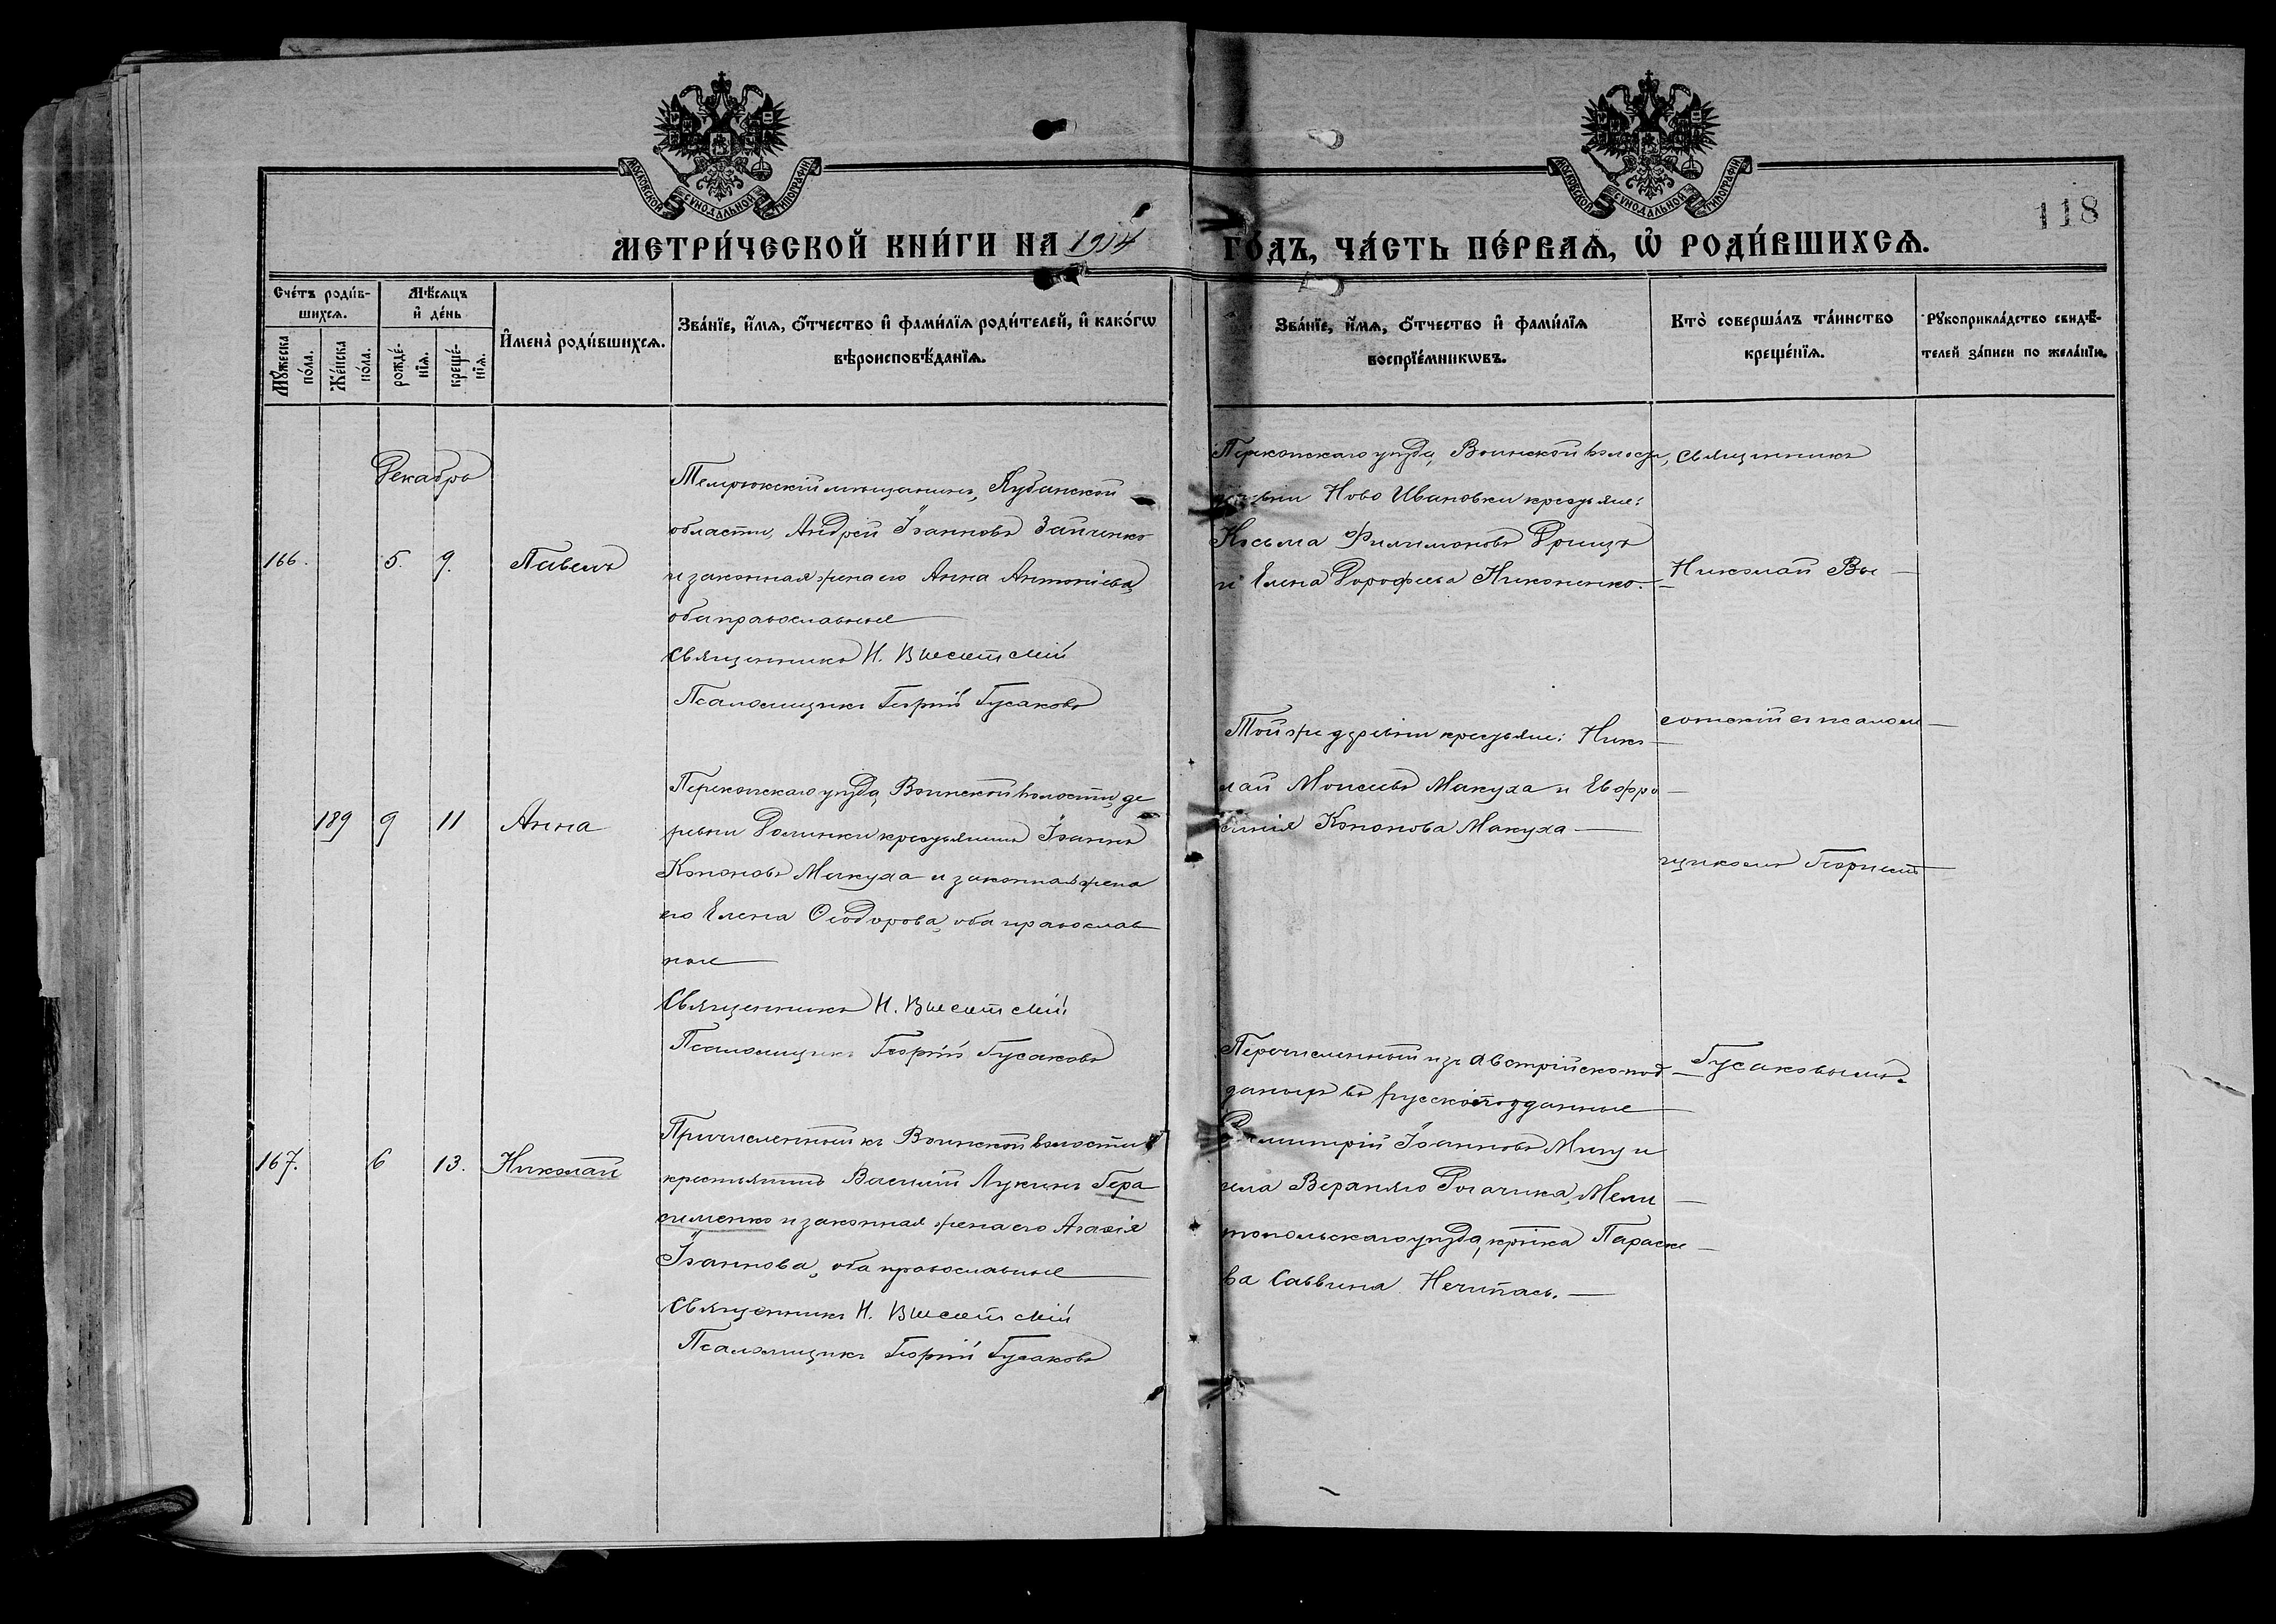 МОСКОВСКОЙ СѴНОДАЛЬНОЙ ТИПОГРАФІИ
МОСКОВСКОЙ СѴНОДАЛЬНОЙ ТИПОГРАФІИ
118
МЕТРИ́ЧЕСКОЙ КНИ́ГИ НА 1914 ГО́ДЪ, ЧА́СТЬ ПЕ́РВАѦ, Ѡ҆ РОДИ́ВШИХСѦ.
Сче́тъ роди́в-
шихсѧ.
Мꙋ́жеска по́ла.
Же́нска по́ла.
Мѣ́сѧцъ
и҆ де́нь
рожде́-
нїѧ.
креще́-
нїѧ.
И҆мена̀ роди́вшихсѧ.
Зва́нїе, и҆́мѧ, ѻ҆́тчество и҆ фами́лїѧ роди́телей, и҆ како́гѡ
вѣроисповѣ́данїѧ.
Зва́нїе, и҆́мѧ, ѻ҆́тчество и҆ фами́лїѧ
воспрїе́мникѡвъ.
Кто̀ соверша́лъ та́инство
креще́нїѧ.
Рꙋкоприкла́дство свидѣ́-
телей за́писи по жела́нїю.
Декабрь
166.
5.
9.
Павелъ
Темрюкскій мѣщанинъ, Кубанской
области, Андрей Іоанновъ Зайченко
и законная жена его Анна Антоніева,
оба православные
Священникъ Н. Высотскій
Псаломщикъ Георгій Гусаковъ
Перекопскаго уѣзда, Воинской волости,
деревни Ново Ивановки крестьяне:
Косьма Филимоновъ Дрицъ
и Елена Дорофеева Никоненко.
Священникъ
Николай Вы-
189
9
11
Анна
Перекопскаго уѣзда, Воинской волости, де
ревни Долинки крестьянинъ Іоаннъ
Кононовъ Макуха и законная жена
его Елена Ѳеодорова, оба православ
ные
Священникъ Н. Высотскій
Псаломщикъ Георгій Гусаковъ
Той же деревни крестьяне: Нико-
лай Моисеевъ Макуха и Евфро-
синія Кононова Макуха
сотскій съ псалом-
щикомъ Георгіемъ
167.
6
13.
Николай
Причисленный къ Воинской волости
крестьянинъ Василій Лукинъ Гера
сименко и законная жена его Агаѳія
Іоаннова, оба православные
Священникъ Н. Высотскій
Псаломщикъ Георгій Гусаковъ
Перечисленный изъ австрійскопод-
данныхъ въ русскоподданные
Димитрій Іоанновъ и
села Верхняго Рогачика, Мели-
топольскаго уѣзда, кр-нка Параске-
ва Саввина Нечипась.
Гусаковымъ.